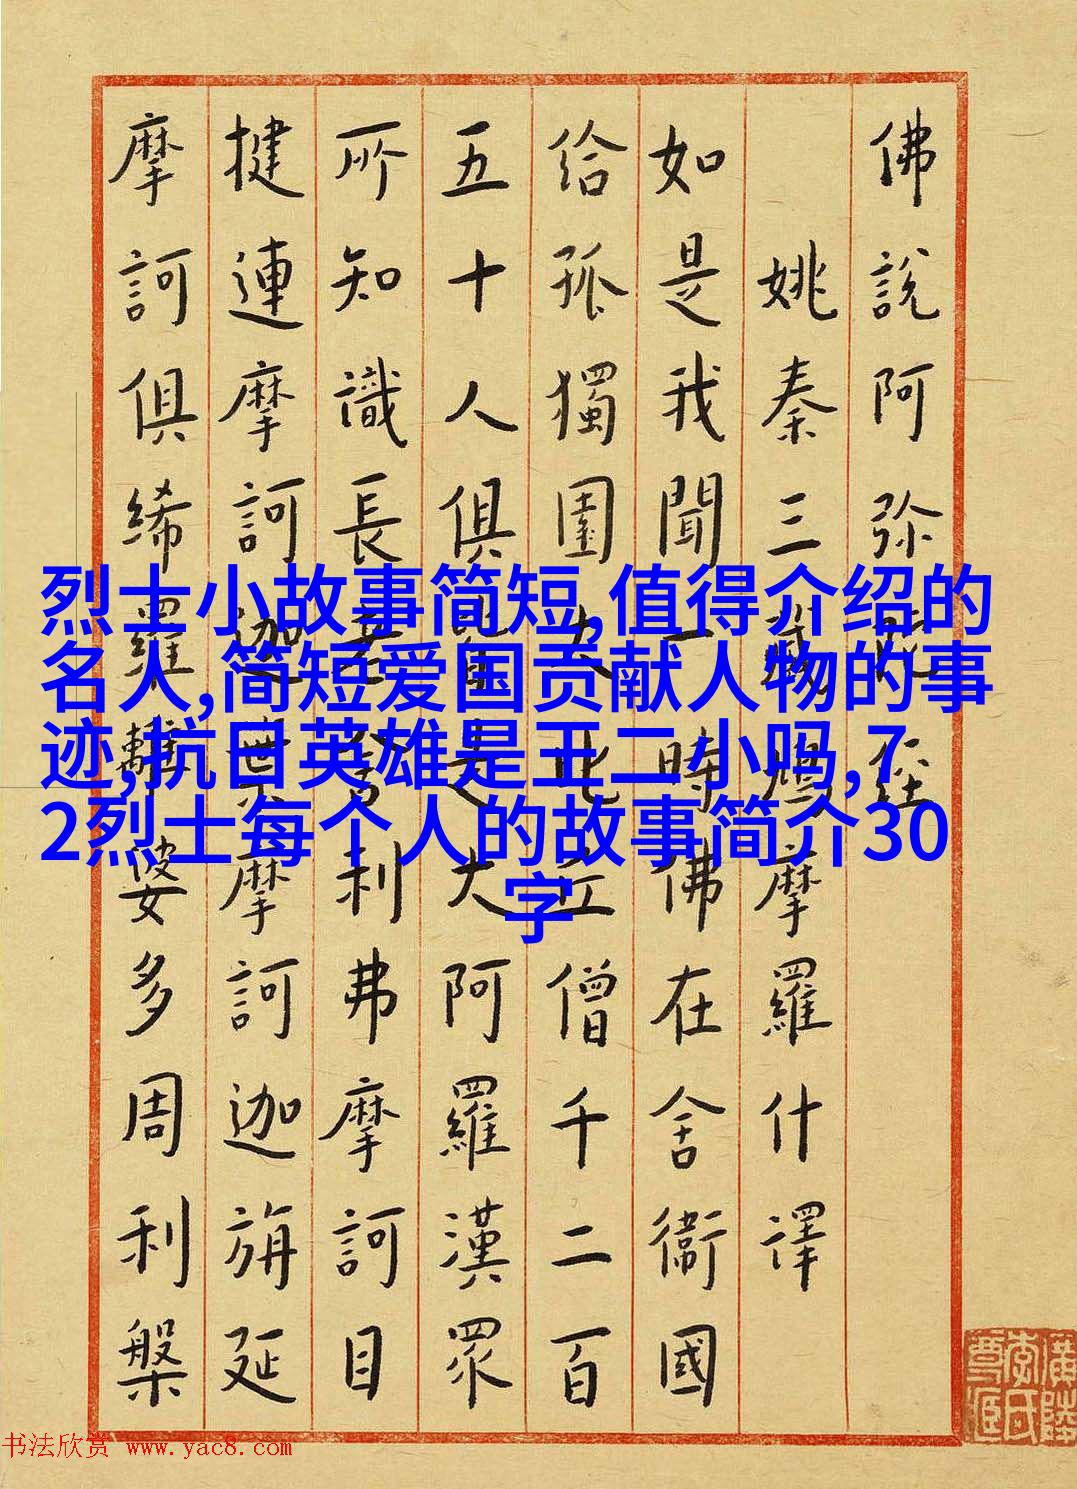 佛說阿弥陀經
姚秦三藏鳩摩羅什譯
如是我聞一時佛在舍衞國
給孤獨園大比丘僧千二百
五十人俱皆是大阿羅漢眾
所知識長老舍利弗摩訶目
揵連摩訶迦葉摩訶迦旃延
摩訶俱絺羅離婆多周利槃
烈士小故事简短,值得介绍的
名人,简短爱国贡献人物的事
迹,抗日英雄是王二小吗,7
2烈士每个人的故事简介30
字
书法欣赏 www.yac8.com